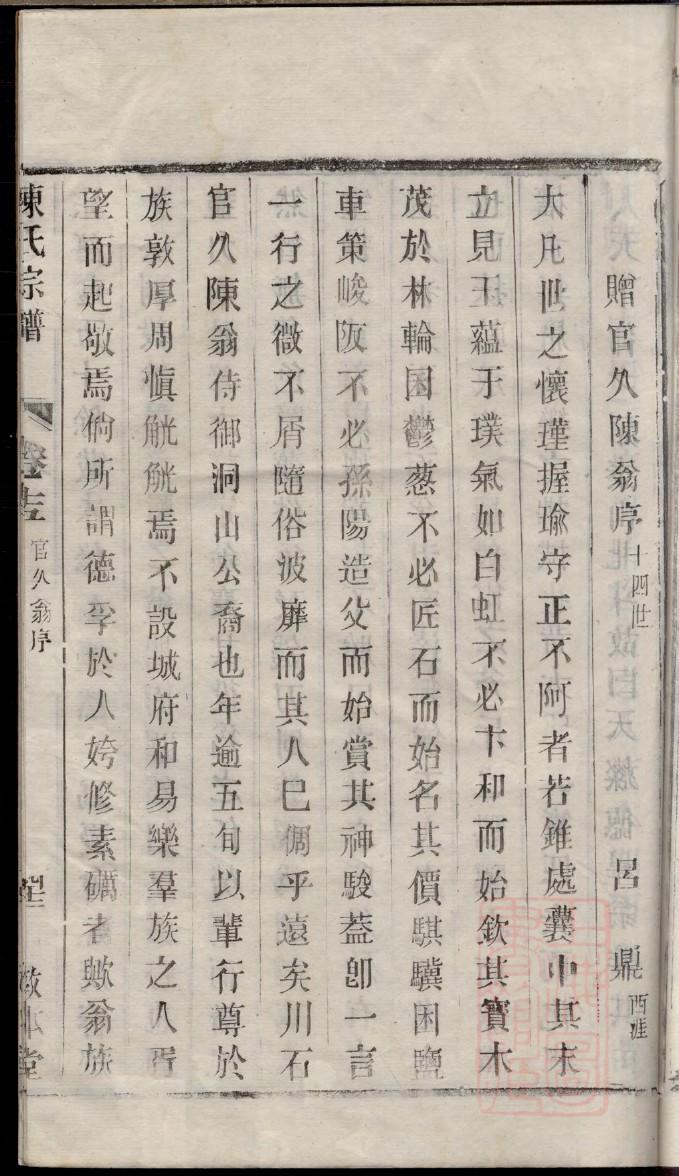 贈官久陳翁序 十四世 呂鼎 西涯
大凡世之懷瑾握瑜守正不阿者若錐處囊中其末
立見玉蘊于璞氣如白虹不必卞和而始欽其寶木
茂於林輪囷鬱葱不必匠石而始名其價騏驥困鹽
車策峻阪不必孫陽造父而始賞其神駿葢卽一言
一行之微不屑隨俗波靡而其人已倜乎遠矣川石
官久陳翁侍御洞山公裔也年逾五旬以輩行尊於
族敦厚周愼觥觥焉不設城府和易樂羣族之人胥
望而起敬焉倘所謂德孚於人姱修素礪者歟翁族
陳氏宗譜 卷 官久翁序 敘本堂